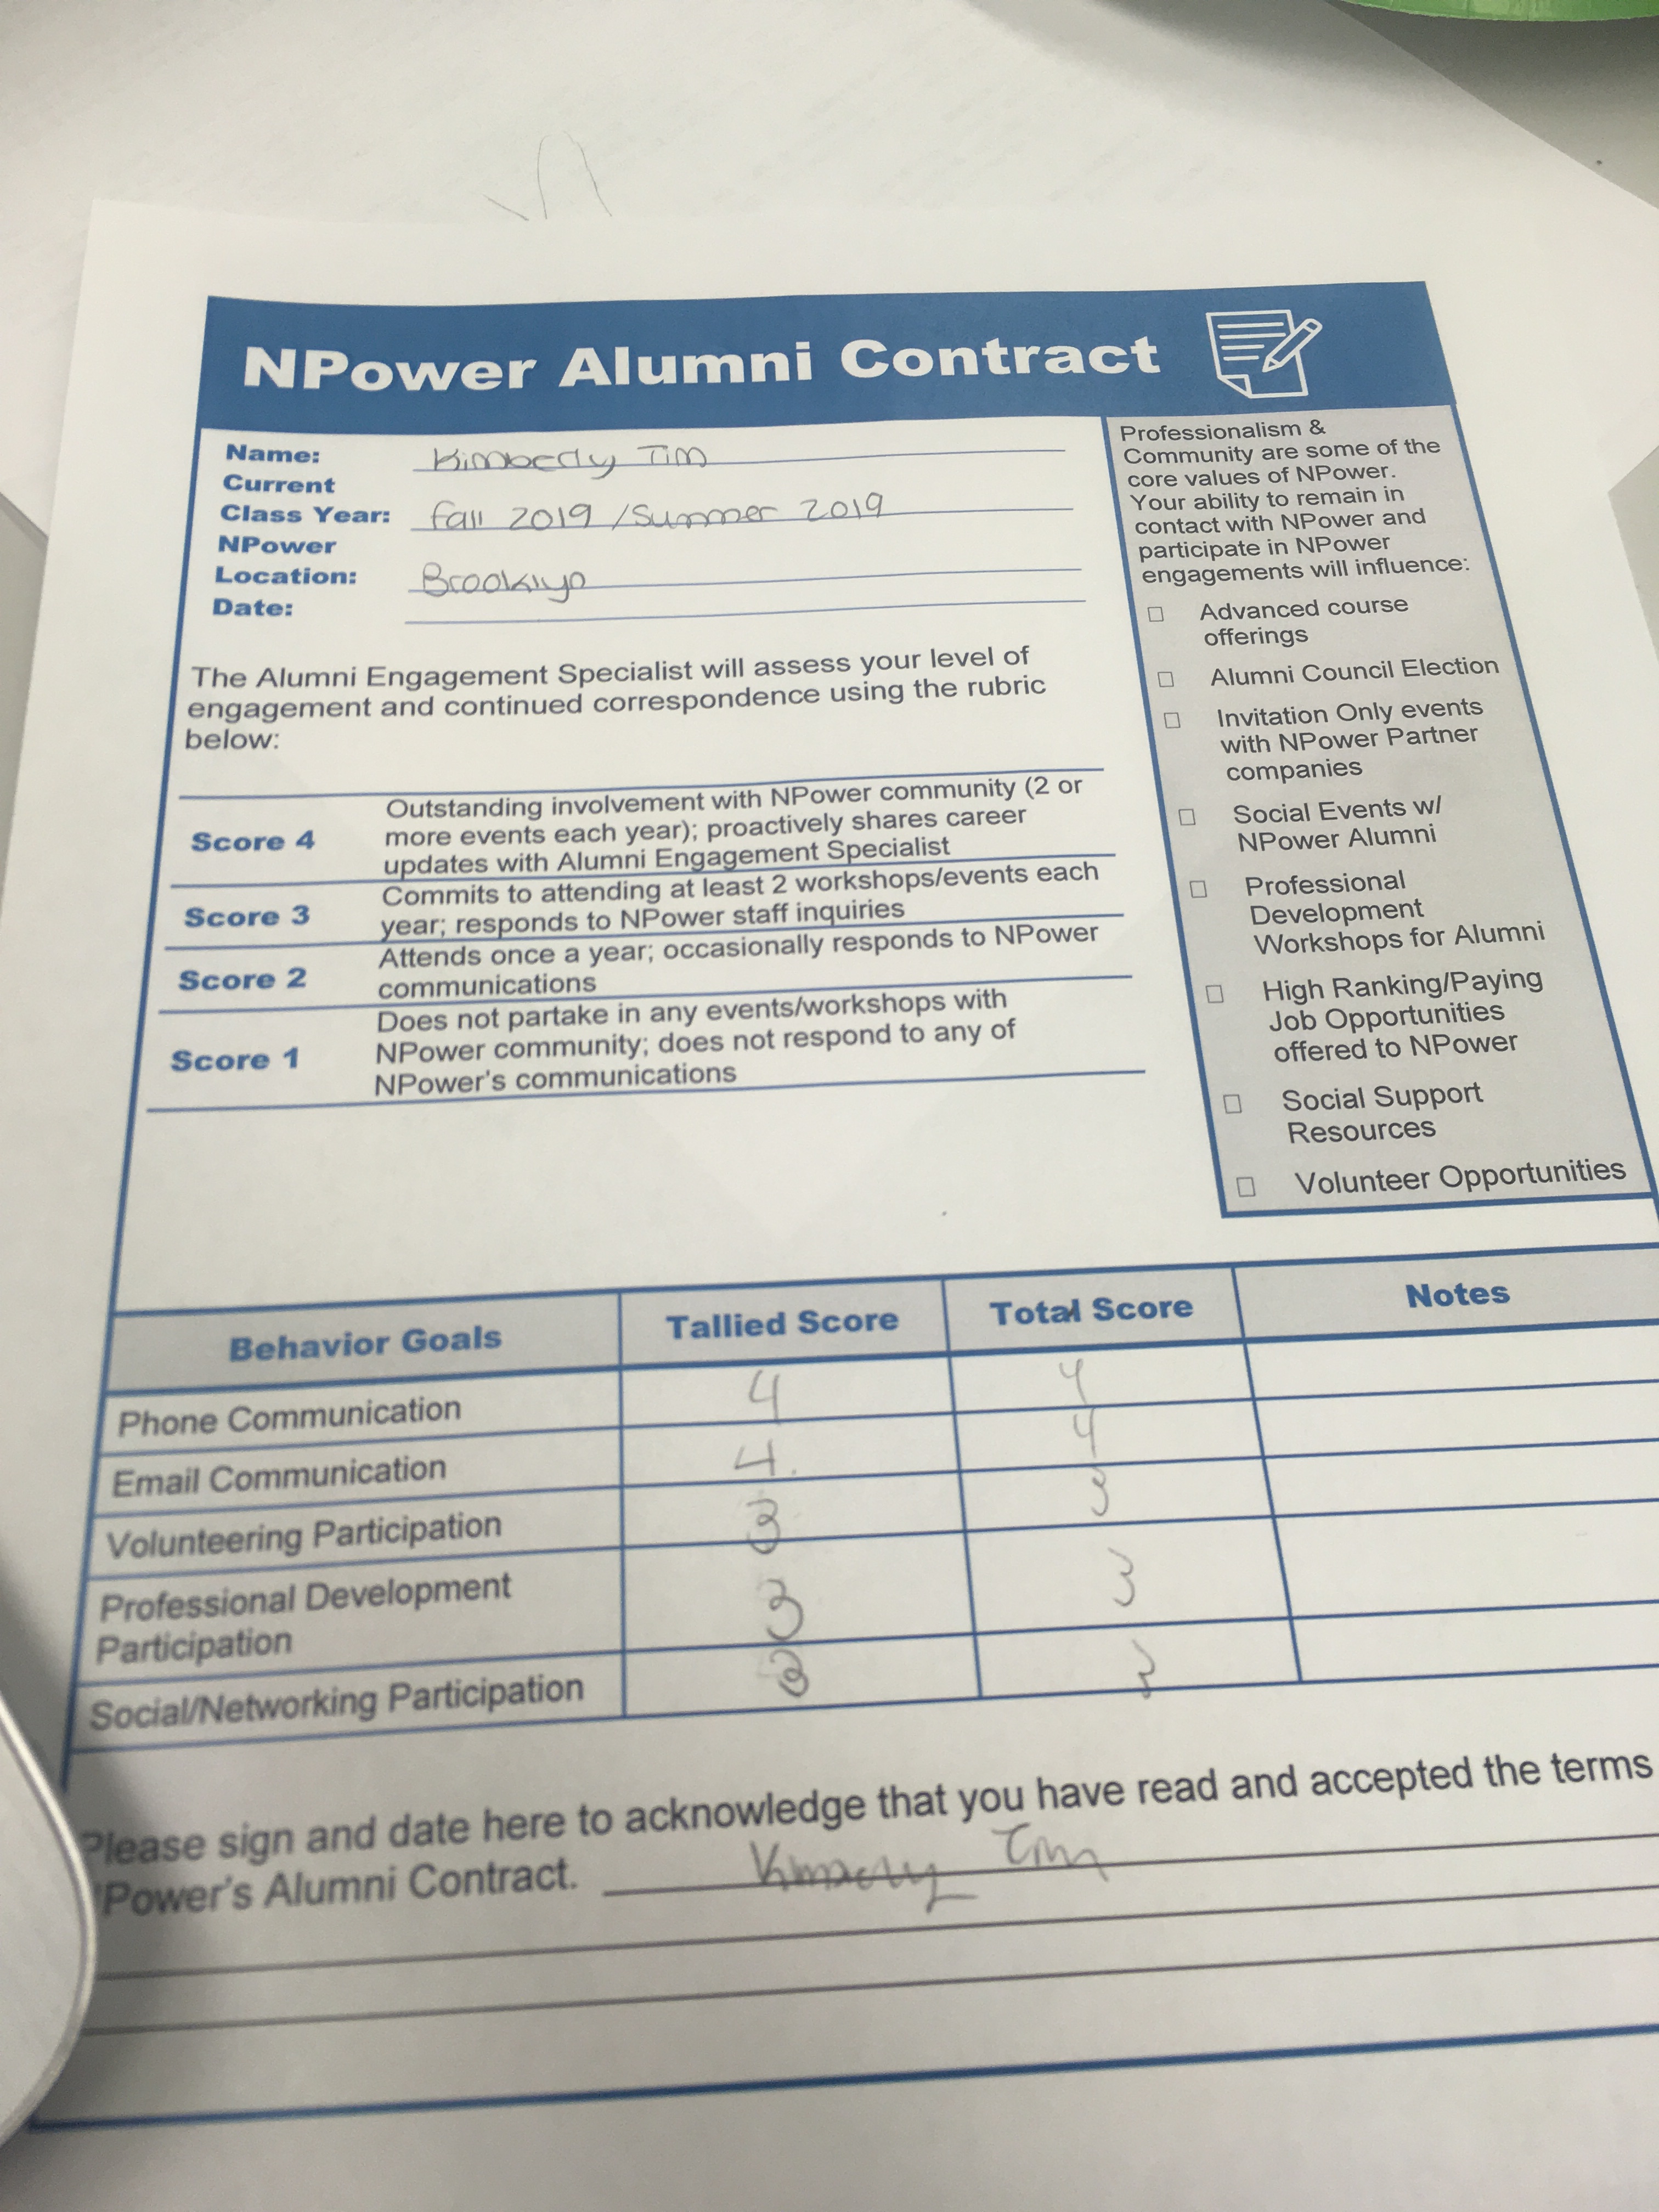 NPower Alumni Contract
Name: Kimberly Tim
Current
Class Year: Fall 2019 / Summer 2019
NPower
Location: Brooklyn
Date:
The Alumni Engagement Specialist will assess your level of
engagement and continued correspondence using the rubric
below:
Score 4
Outstanding involvement with NPower community (2 or
more events each year); proactively shares career
updates with Alumni Engagement Specialist
Score 3
Commits to attending at least 2 workshops/events each
year; responds to NPower staff inquiries
Score 2
Attends once a year; occasionally responds to NPower
communications
Score 1
Does not partake in any events/workshops with
NPower community; does not respond to any of
NPower's communications
Professionalism &
Community are some of the
core values of NPower.
Your ability to remain in
contact with NPower and
participate in NPower
engagements will influence:
Advanced course
offerings
Alumni Council Election
Invitation Only events
with NPower Partner
companies
Social Events w/
NPower Alumni
Professional
Development
Workshops for Alumni
High Ranking/Paying
Job Opportunities
offered to NPower
Social Support
Resources
Volunteer Opportunities
Behavior Goals Tallied Score Total Score Notes
Phone Communication 4 4
Email Communication 4. 4
Volunteering Participation 3 3
Professional Development
Participation 3 3
Social/Networking Participation 3 3
Please sign and date here to acknowledge that you have read and accepted the terms
Power's Alumni Contract. Kimberly Tim